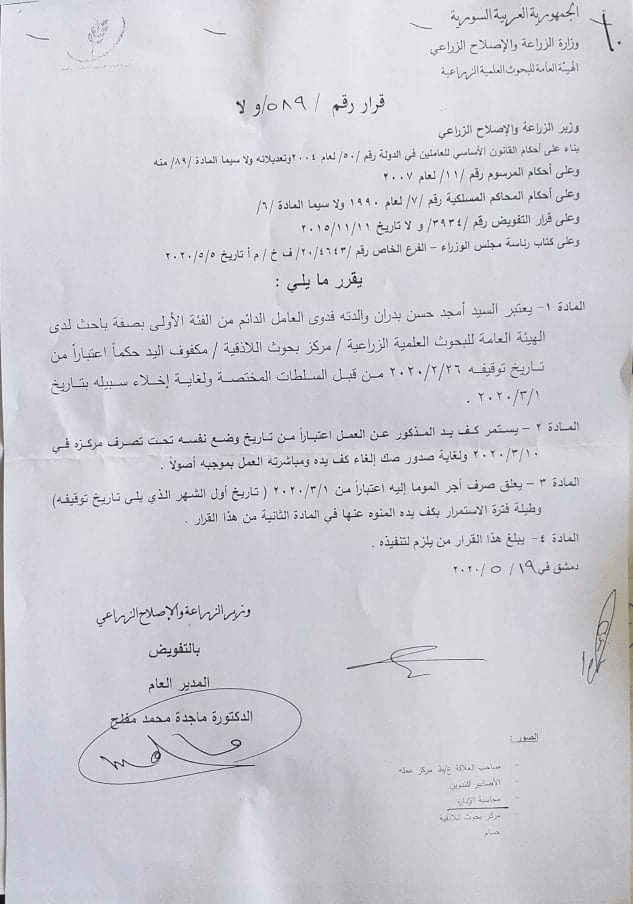 الجمهورية العربية السورية
وزارة الزراعة والإصلاح الزراعي
الهيئة العامة للبحوث العلمية الزراعية
قرار رقم / ٥٨٩/و لا
وزير الزراعة والإصلاح الزراعي
بناء على أحكام القانون الأساسي للعاملين في الدولة رقم /٥٠/ لعام ٢٠٠٤ وتعديلاته ولا سيما المادة /٨٩/ منه
وعلى أحكام المرسوم رقم /١١/ لعام ٢٠٠٧
وعلى أحكام المحاكم المسلكية رقم /٧/ لعام ١٩٩٠ ولا سيما المادة /٦/
وعلى قرار التفويض رقم /٣٩٣٤/ و لا تاريخ ٢٠١٥/١١/١١
وعلى كتاب رئاسة مجلس الوزراء – الفرع الخاص رقم /٢٠/٤٦٤٣/ ف خ / م أ تاريخ ٢٠٢٠/٥/٥
يقرر ما يلي :
المادة ١- يعتبر السيد أمجد حسن بدران والدته فدوى العامل الدائم من الفئة الأولى بصفة باحث لدى
الهيئة العامة للبحوث العلمية الزراعية / مركز بحوث اللاذقية / مكفوف اليد حكماً اعتباراً من
تاريخ توقيفه ٢٠٢٠/٢/٢٦ من قبل السلطات المختصة ولغاية إخلاء سبيله بتاريخ
٢٠٢٠/٣/١ .
المادة ٢- يستمر كف يد المذكور عن العمل اعتباراً من تاريخ وضع نفسه تحت تصرف مركزه في
٢٠٢٠/٣/١٠ ولغاية صدور صك إلغاء كف يده ومباشرته العمل بموجبه أصولاً .
المادة ٣- يعلق صرف أجر الموما إليه اعتباراً من ٢٠٢٠/٣/١ ( تاريخ أول الشهر الذي يلي تاريخ توقيفه)
وطيلة فترة الاستمرار بكف يده المنوه عنها في المادة الثانية من هذا القرار .
المادة ٤- يبلغ هذا القرار من يلزم لتنفيذه .
دمشق في ١٩/ ٥ /٢٠٢٠
وزير الزراعة والإصلاح الزراعي
بالتفويض
المدير العام
الدكتورة ماجدة محمد مفلح
الصور :
- صاحب العلاقة مركز عمله
- الأضابير للتدوين
- محاسبة الإدارة
مركز بحوث اللاذقية